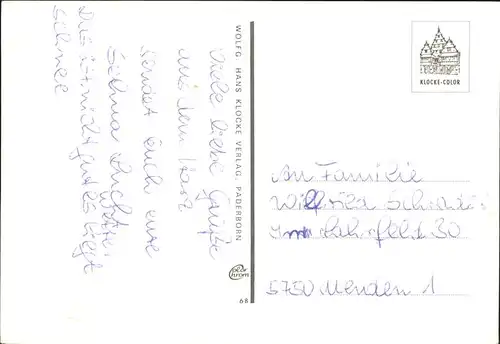 Viele liebe Grüße
aus dem Harz
sendet Euch eure
Selma
Wetter
Das ist nicht gut es liegt
Schnee
WOLFG. HANS KLOCKE VERLAG, PADERBORN
color
chrom
68
KLOCKE-COLOR
An Familie
Wilfried
Im Lahrfeld 30
5750 Menden 1